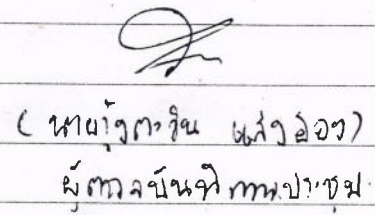 (นายรุ้งตะวัน แสงสอง)
ผู้ตรวจบันทึกการประชุม